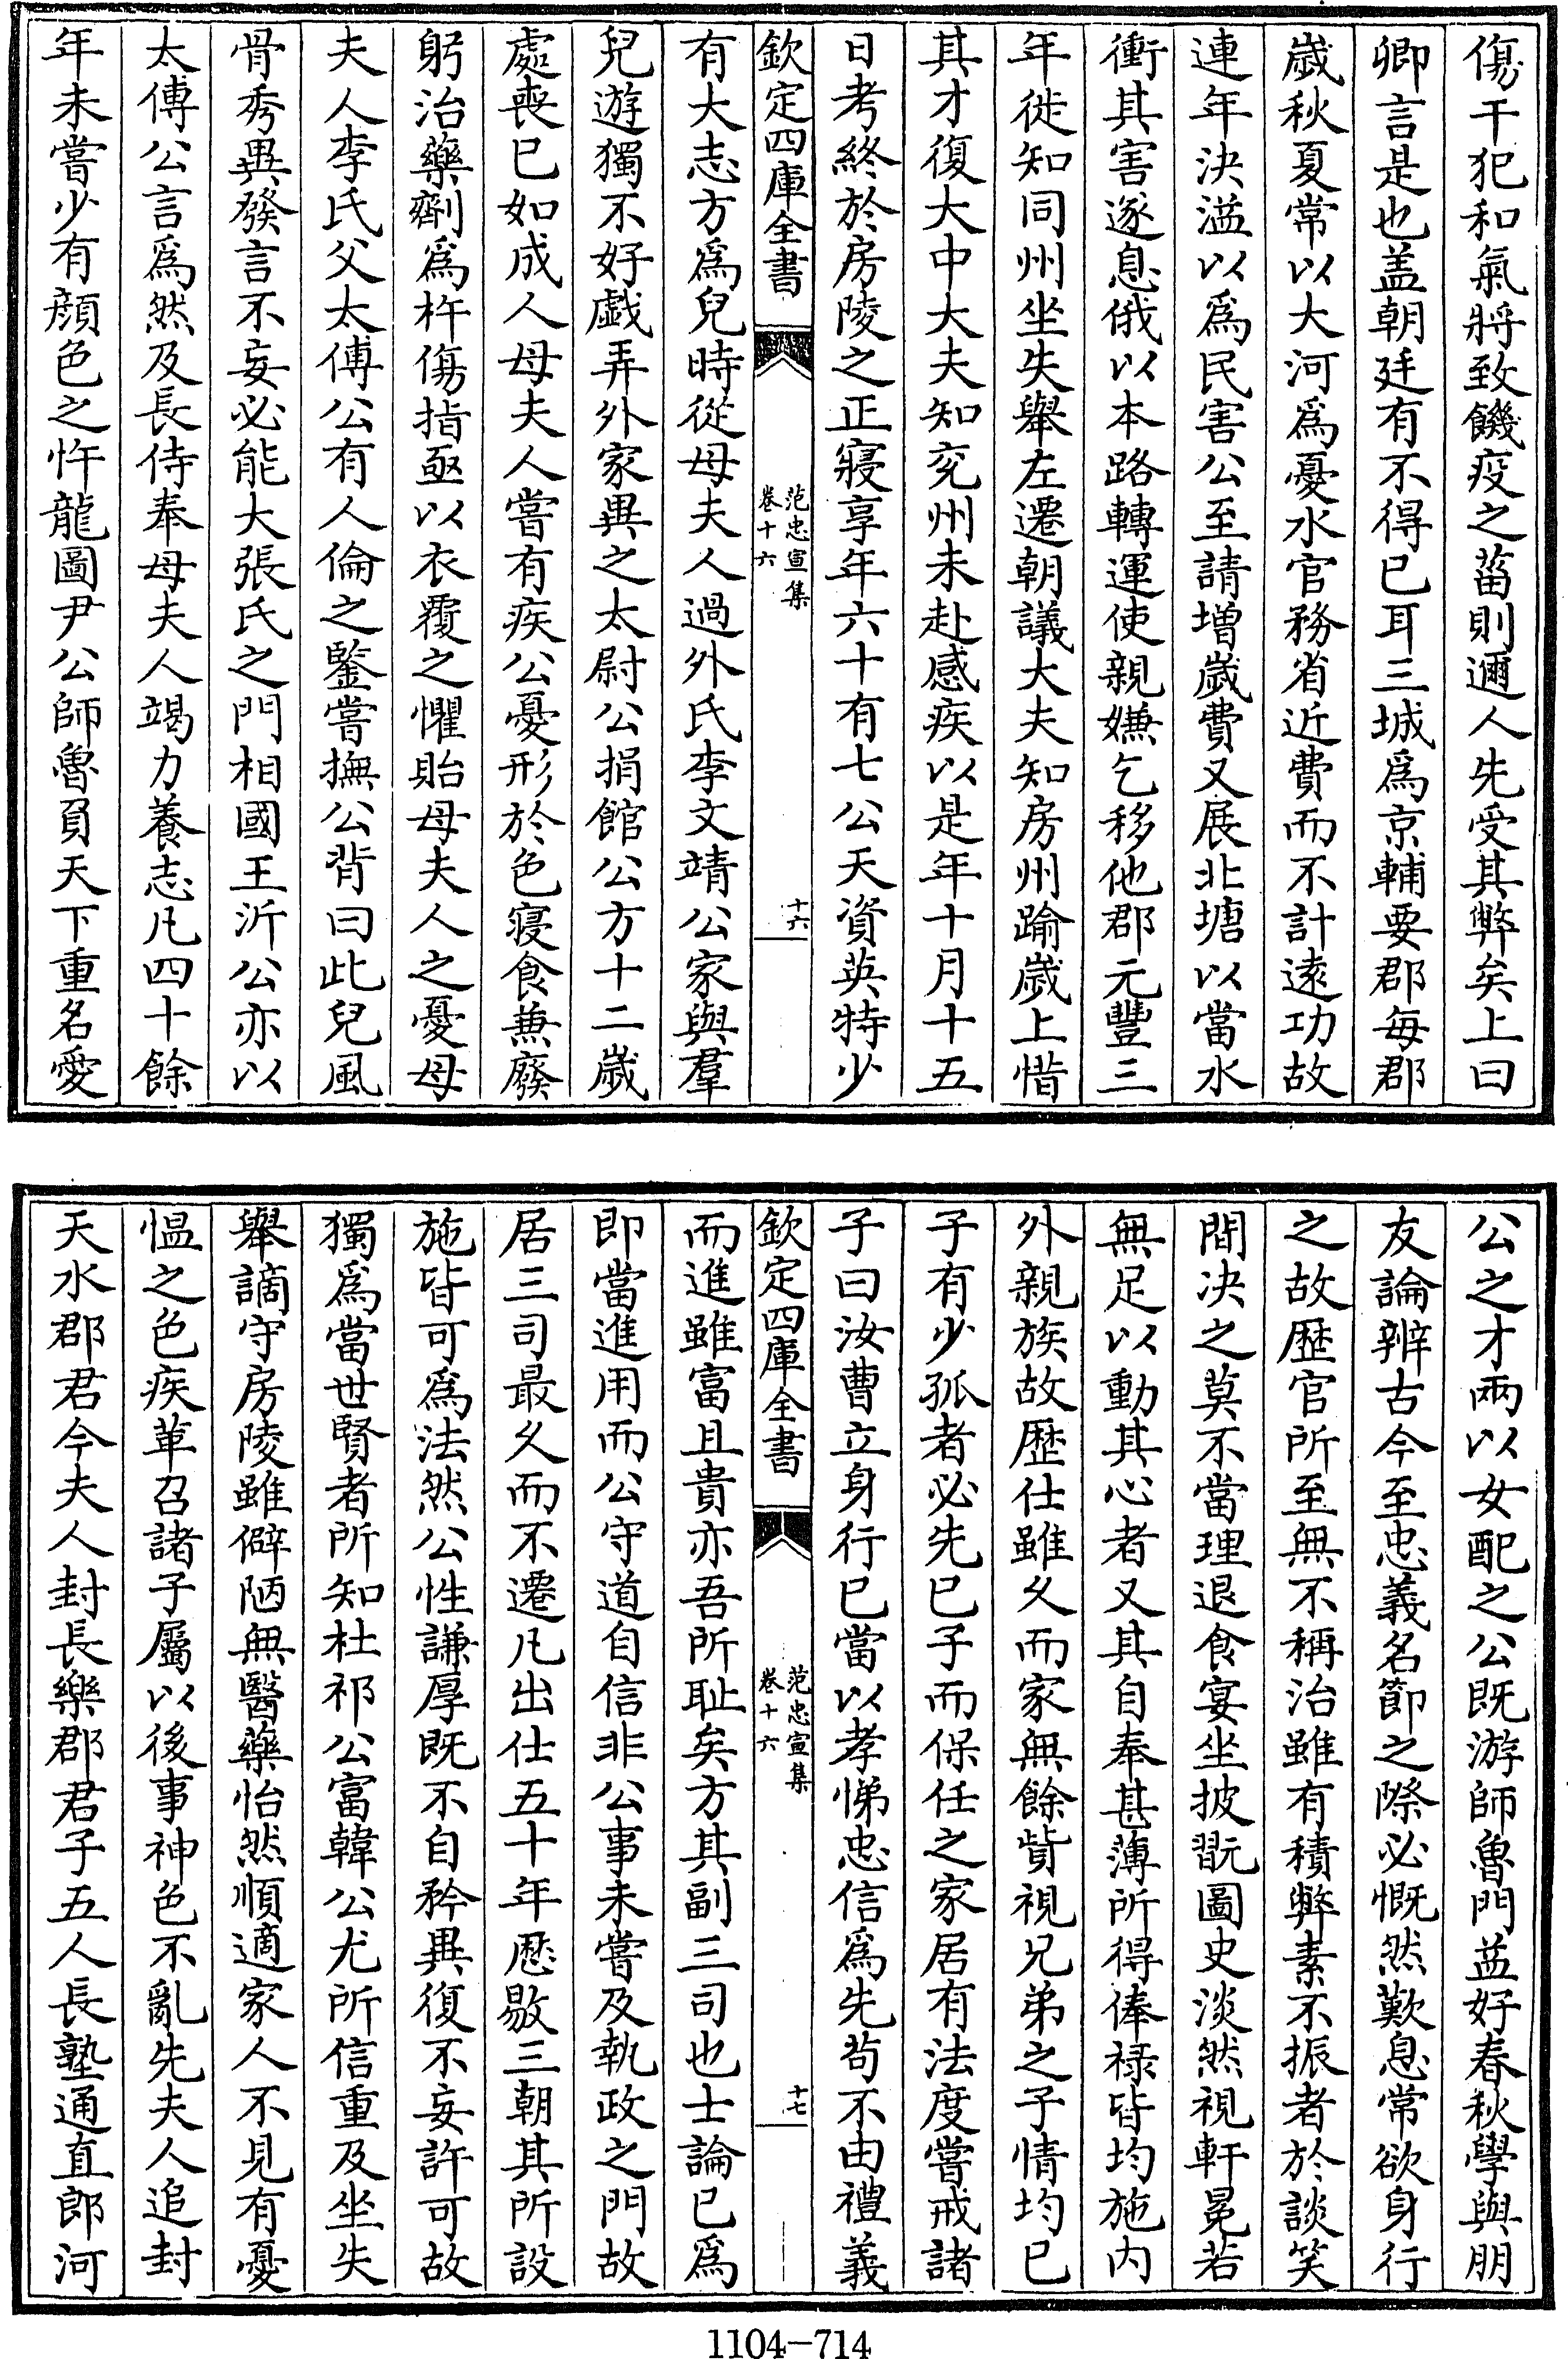 傷干犯和氣將致饑疫之菑則邇人先受其弊矣上曰
卿言是也盖朝廷有不得已耳三城爲京輔要郡每郡
歲秋夏常以大河爲憂水官務省近費而不計逺功故
連年決溢以爲民害公至請増歲費又展北塘以當水
衝其害遂息俄以本路轉運使親嫌乞移他郡元豐三
年徙知同州坐失舉左遷朝議大夫知房州踰歲上惜
其才復大中大夫知兖州未赴感疾以是年十月十五
日考終於房陵之正寢享年六十有七公天資英特少
欽定四庫全書
范忠宣集
卷十六
十六
有大志方爲兒時從母夫人過外氏李文靖公家與羣
兒遊獨不好戯弄外家異之太尉公捐館公方十二歲
處喪已如成人母夫人嘗有疾公憂形於色寝食兼廢
躬治藥劑爲杵傷指亟以衣覆之懼貽母夫人之憂母
夫人李氏父太傅公有人倫之鑒嘗撫公背曰此兒風
骨秀異發言不妄必能大張氏之門相國王沂公亦以
太傅公言爲然及長侍奉母夫人竭力養志凡四十餘
年未嘗少有顔色之忤龍圖尹公師魯負天下重名愛
公之才兩以女配之公既游師魯門益好春秋學與朋
友論辨古今至忠義名節之際必慨然歎息常欲身行
之故歴官所至無不稱治雖有積弊素不振者於談笑
間决之莫不當理退食宴坐披翫圖史淡然視軒冕若
無足以動其心者又其自奉甚薄所得俸禄皆均施内
外親族故歴仕雖久而家無餘貲視兄弟之子情均已
子有少孤者必先已子而保任之家居有法度嘗戒諸
子曰汝曹立身行已當以孝悌忠信爲先苟不由禮義
欽定四庫全書
范忠宣集
卷十六
十七
而進雖富且貴亦吾所耻矣方其副三司也士論已爲
即當進用而公守道自信非公事未嘗及執政之門故
居三司最久而不遷凡出仕五十年歷敭三朝其所設
施皆可爲法然公性謙厚既不自矜異復不妄許可故
獨爲當世賢者所知杜祁公富韓公尤所信重及坐失
舉謫守房陵雖僻陋無醫藥怡然順適家人不見有憂
愠之色疾革召諸子屬以後事神色不亂先夫人追封
天水郡君今夫人封長樂郡君子五人長塾通直郎河
1104-714